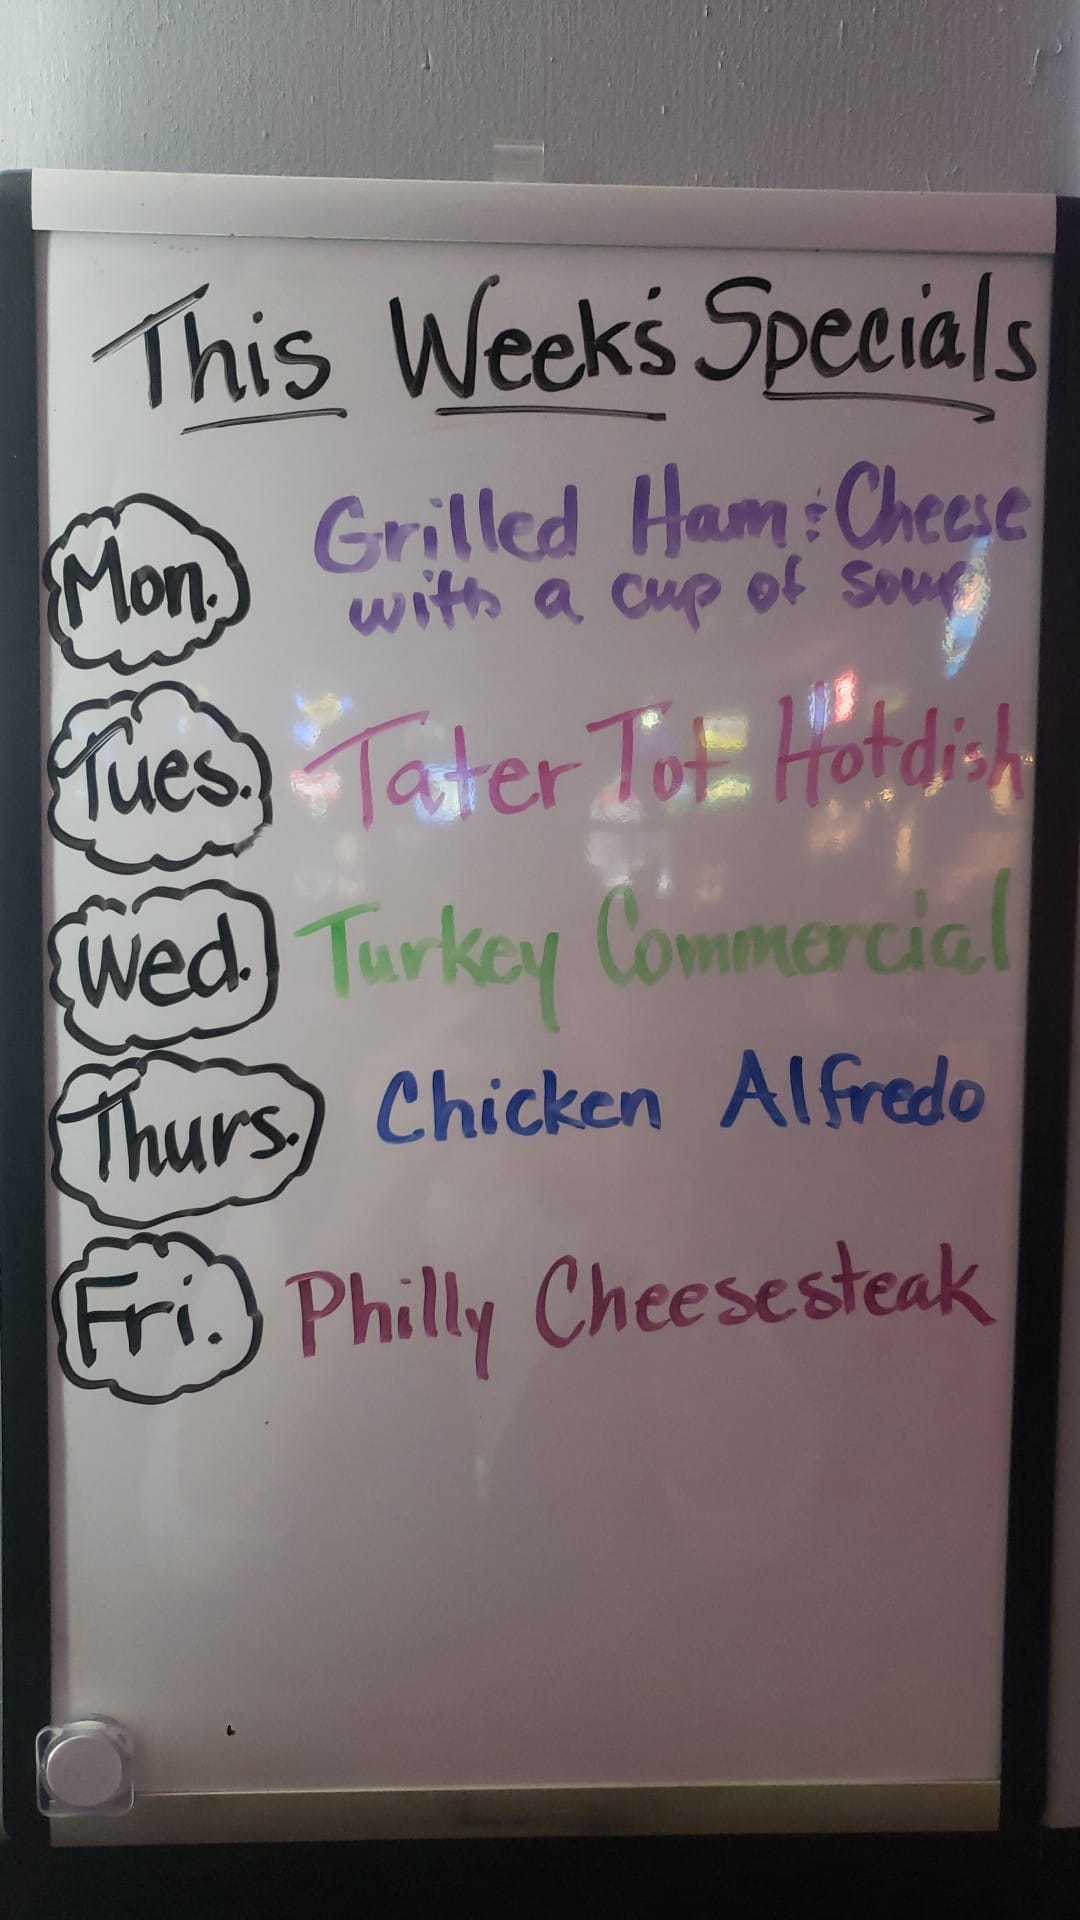 This Week's Specials
Mon. Grilled Ham & Cheese
with a cup of soup
Tues. Tater Tot Hotdish
Wed. Turkey Commercial
Thurs. Chicken Alfredo
Fri. Philly Cheesesteak